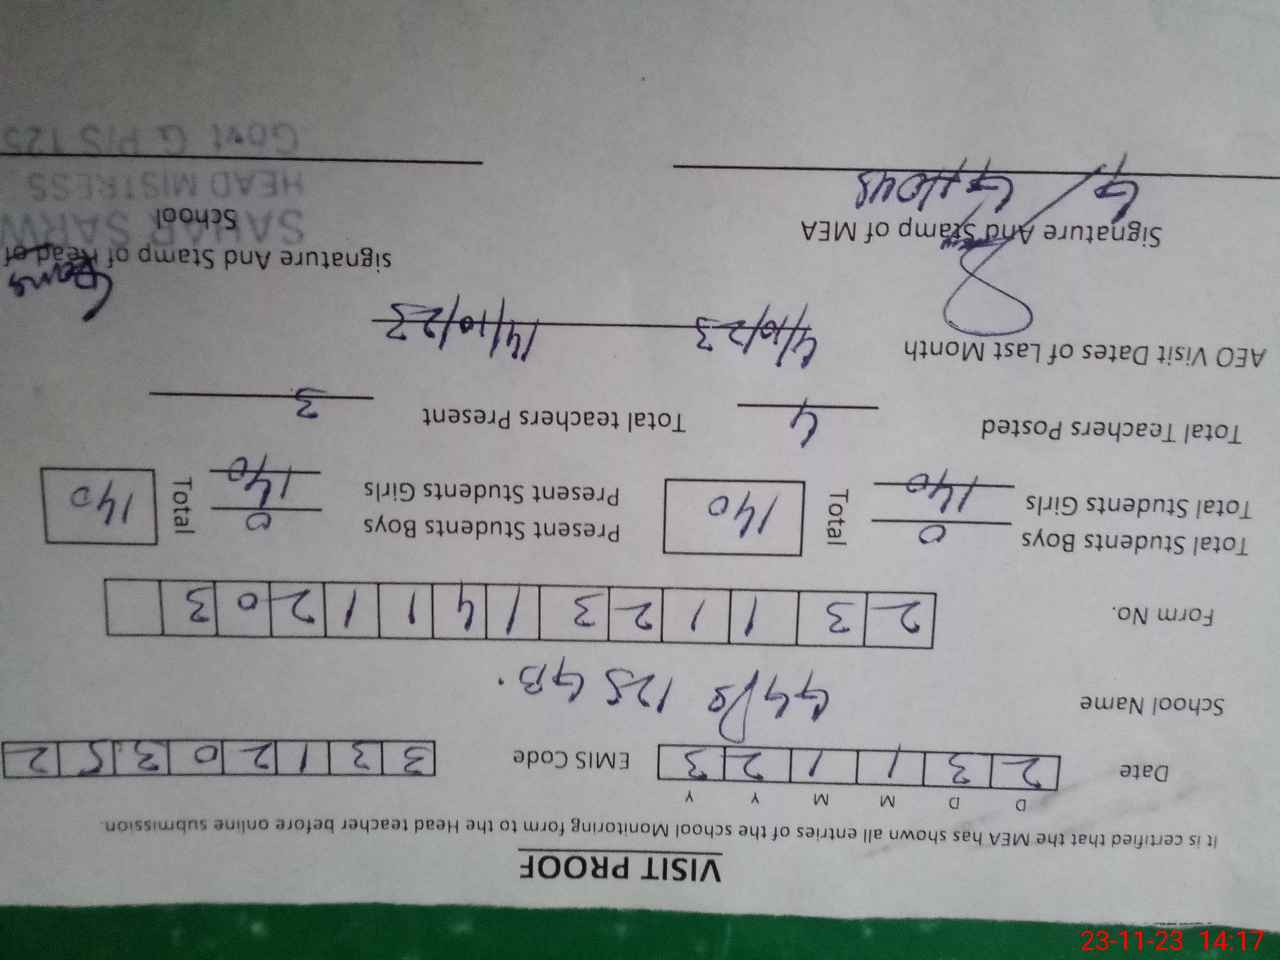 VISIT PROOF
It is certified that the MEA has shown all entries of the school Monitoring form to the Head teacher before online submission.
D D M M Y Y
Date 2 3 1 1 2 3 EMIS Code 3 3 1 2 0 3 5 2
School Name GGPS 125 GB.
Form No. 2 3 1 1 2 3 1 4 1 1 2 0 3
Total Students Boys 0 Total 140 Present Students Boys 0 Total 140
Total Students Girls 140 Present Students Girls 140
Total Teachers Posted 4 Total teachers Present 3
AEO Visit Dates of Last Month 4/10/23 14/10/23
Signature And Stamp of MEA signature And Stamp of Head of School
SAHAR SARW
HEAD MISTRESS
Govt G P/S 125
23-11-23 14:17